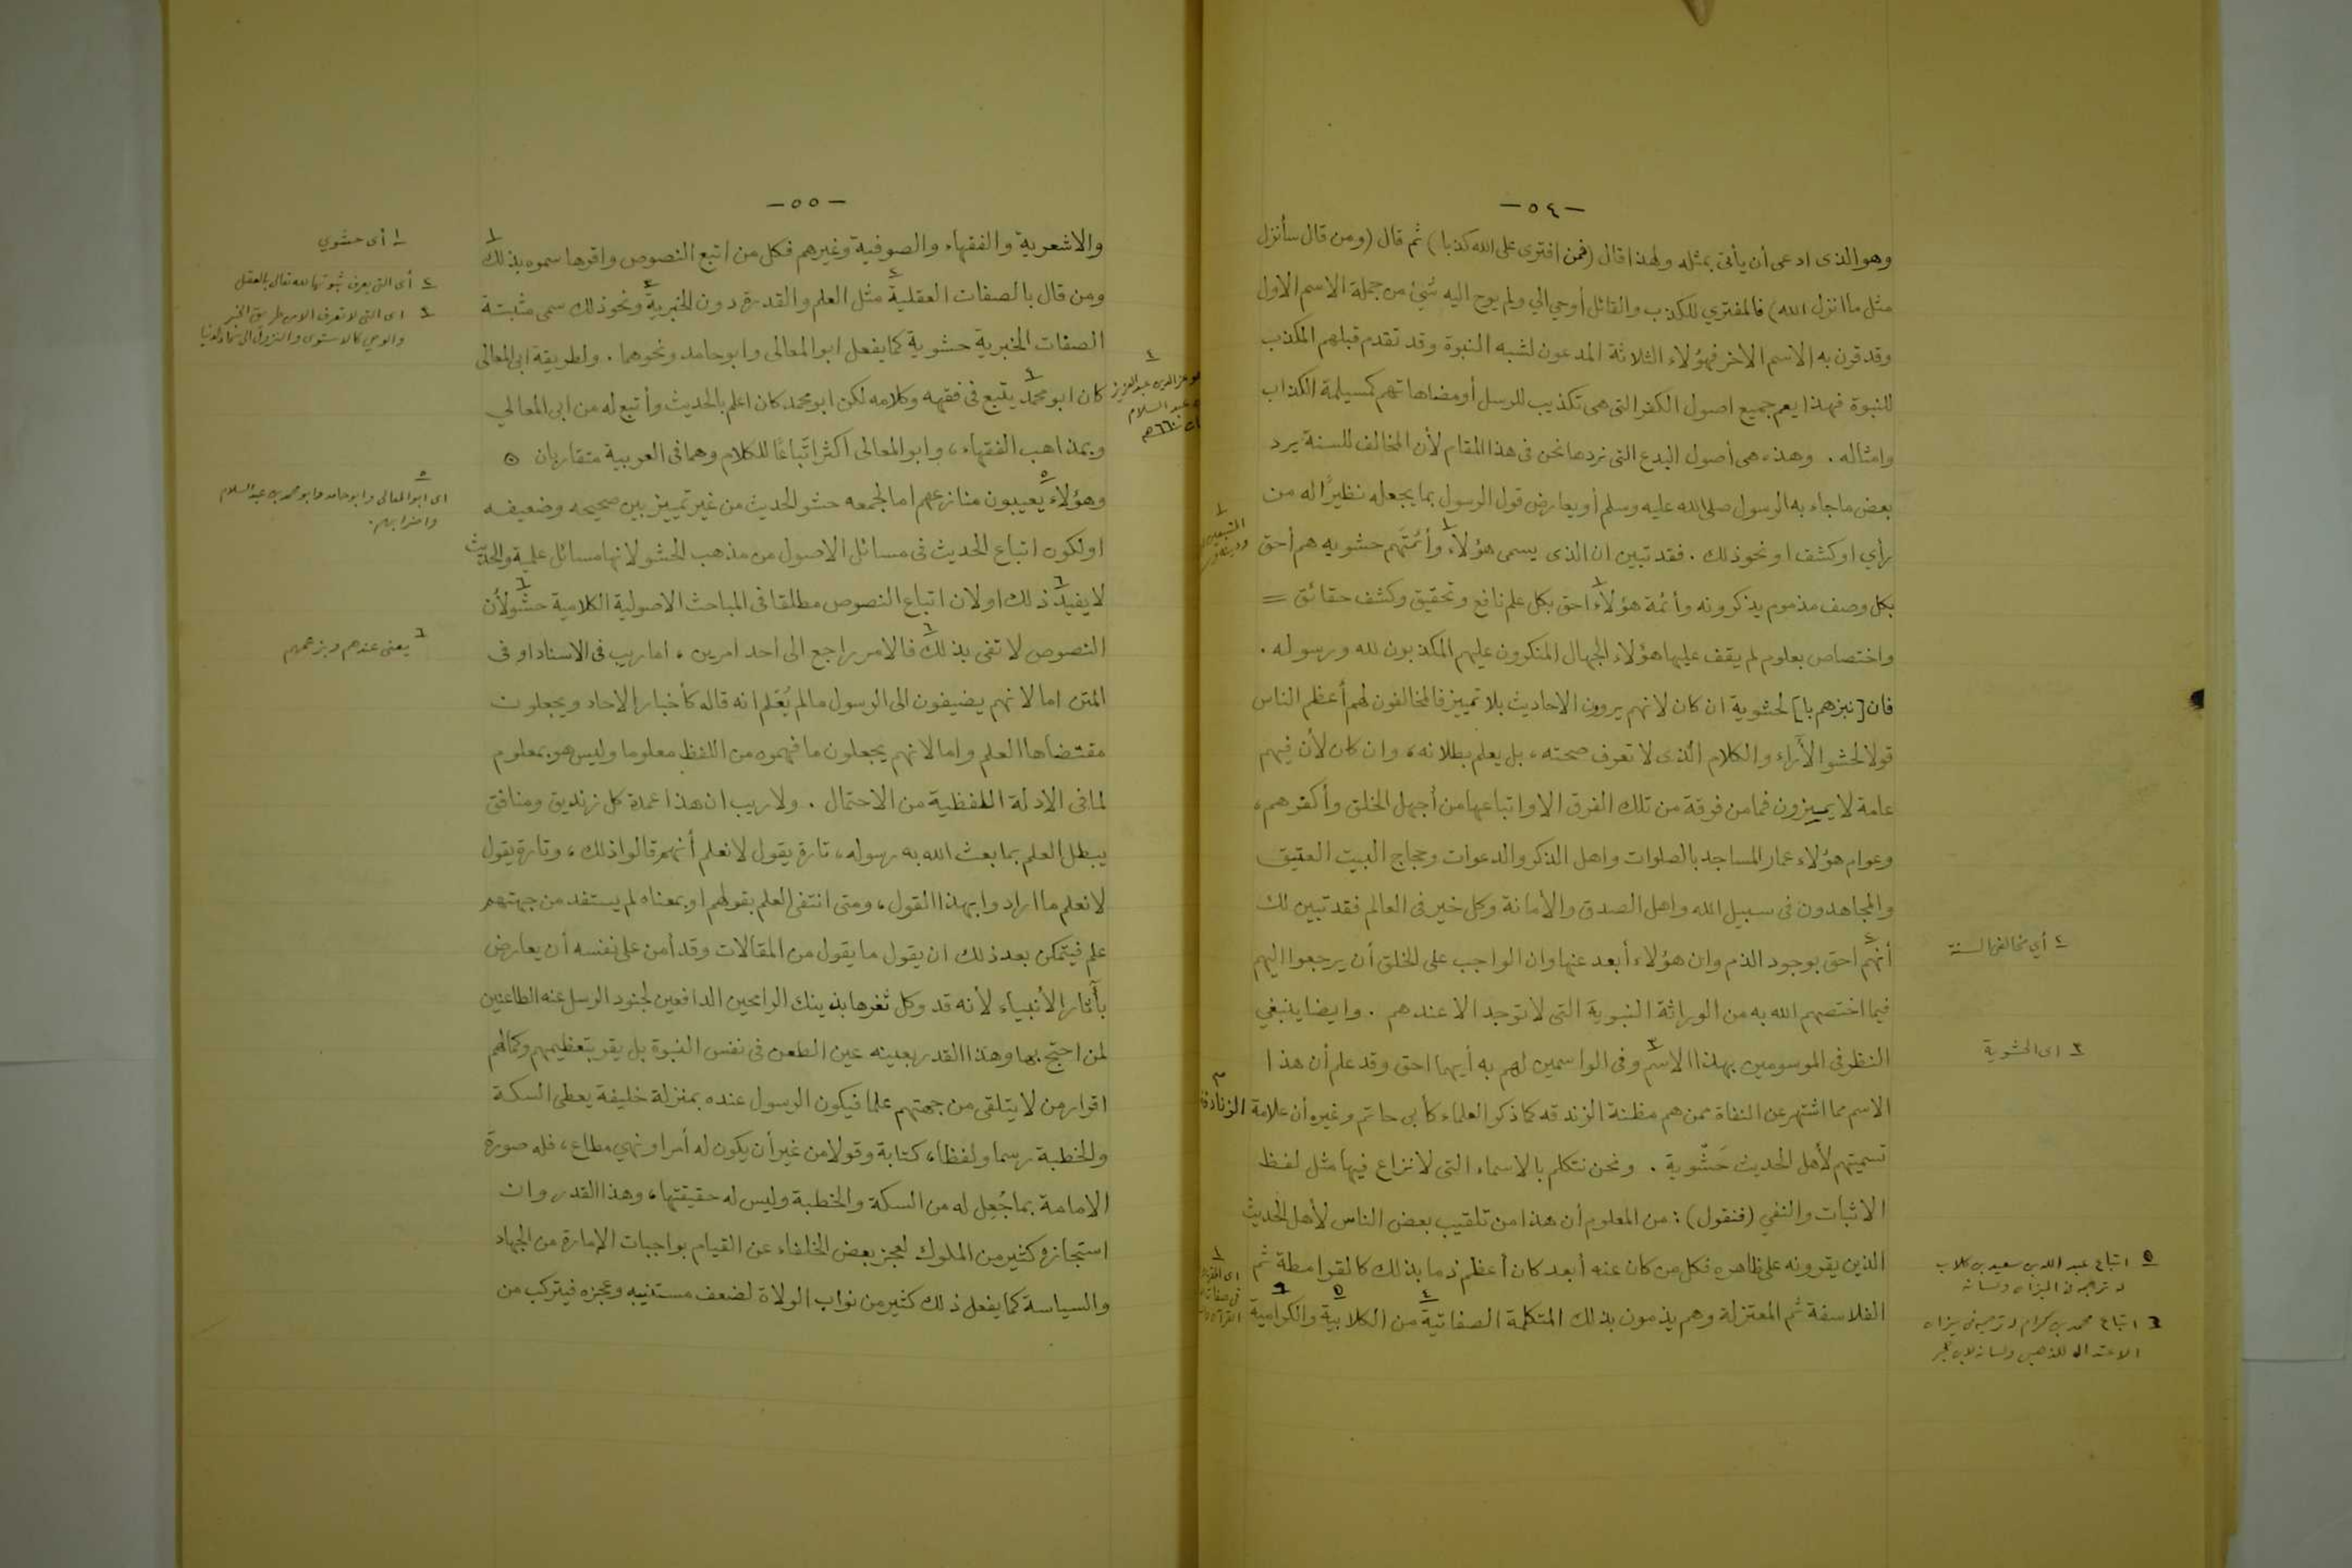 -٥٤-
وهو الذى ادعى أن يأتى بمثله ولهذا قال (فمن افترى على الله كذبا) ثم قال (ومن قال سأنزل
مثل ما انزل الله) فالمفتري للكذب والقائل أوحي الي ولم يوح اليه شئ من جملة الاسم الاول
وقد قرن به الاسم الاخر فهؤلاء الثلاثة المدعون لشبه النبوة وقد تقدم قبلهم المكذب
للنبوة فهذا يعم جميع اصول الكفر التى هى تكذيب للرسل أو مضاهاتهم كمسيلمة الكذاب
وامثاله . وهذه هى أصول البدع التى نردها نحن فى هذا المقام لأن المخالف للسنة يرد
بعض ما جاء به الرسول صلى الله عليه وسلم أو يعارض قول الرسول بما يجعله نظيرًا له من
رأي او كشف او نحو ذلك . فقد تبين ان الذى يسمى هؤلاء١ وأئمتهم حشويه هم أحق
بكل وصف مذموم يذكرونه وأئمة هؤلاء١ احق بكل علم نافع وتحقيق وكشف حقائق =
واختصاص بعلوم لم يقف عليها هؤلاء الجهال المنكرون عليهم المكذبون لله ورسوله .
فان [نبزهم با] لحشوية ان كان لانهم يروون الاحاديث بلا تمييز فالمخالفون لهم أعظم الناس
قولا لحشو الآراء والكلام الذى لا تعرف صحته، بل يعلم بطلانه، وان كان لأن فيهم
عامة لا يميزون فما من فرقة من تلك الفرق الا واتباعها من أجهل الخلق وأكفرهم،
وعوام هؤلاء عمار المساجد بالصلوات واهل الذكر والدعوات وحجاج البيت العتيق
والمجاهدون فى سبيل الله واهل الصدق والأمانة وكل خير فى العالم فقد تبين لك
أنهم٢ احق بوجود الذم وان هؤلاء أبعد عنها وان الواجب على الخلق أن يرجعوا اليهم
فيما اختصهم الله به من الوراثة النبوية التى لا توجد الا عندهم . وايضا ينبغي
النظر فى الموسومين بهذا الاسم٣ وفى الواسمين لهم به أيهما احق وقد علم أن هذا
الاسم مما اشتهر عن النفاة ممن هم مظنة الزندقه كما ذكر العلماء كأبى حاتم وغيره أن علامة الزنادقة
تسميتهم لأهل الحديث حَشْوية . ونحن نتكلم بالاسماء التى لا نزاع فيها مثل لفظ
الاثبات والنفي (فنقول) : من المعلوم أن هذا من تلقيب بعض الناس لأهل الحديث
الذين يقرونه على ظاهره فكل من كان عنه أبعد كان أعظم ذما بذلك كالقرامطة ثم
الفلاسفة ثم المعتزلة وهم يذمون بذلك المتكلمة الصفاتية٤ من الكلابية٥ والكرامية٦
٢ أي مخالفى السنة
٣ اى الحشوية
٥ اتباع عبد الله بن سعيد بن كلاب
له ترجمه فى الميزان ولسانه
٦ اتباع محمد بن كرام له ترجمة فى ميزان
الاعتدال للذهبى ولسانه لابن حجر
-٥٥-
والاشعرية والفقهاء والصوفية وغيرهم فكل من اتبع النصوص واقرها سموه بذلك١
ومن قال بالصفات العقلية٢ مثل العلم والقدرة دون الخبرية٣ ونحو ذلك سمى مثبتة
الصفات الخبرية حشوية كما يفعل ابو المعالى وابو حامد ونحوهما . ولطريقة ابى المعالى
كان ابو محمد٤ يتبع فى فقهه وكلامه لكن ابو محمد كان اعلم بالحديث وأتبع له من ابى المعالي
وبمذاهب الفقهاء، وابو المعالى اكثر اتّباعًا للكلام وهما فى العربية متقاربان ⊙
وهؤلاء٥ يعيبون منازعهم اما لجمعه حشو الحديث من غير تمييز بين صحيحه وضعيفه
او لكون اتباع الحديث فى مسائل الاصول من مذهب الحشو لانها مسائل علمية والحديث
لا يفيد٦ ذلك او لان اتباع النصوص مطلقا فى المباحث الاصولية الكلامية حشو٦ لأن
النصوص لا تفى بذلك٦ فالامر راجع الى احد امرين، اما ريب فى الاسناد او فى
المتن اما لانهم يضيفون الى الرسول ما لم يُعْلم انه قاله كأخبار الاحاد ويجعلون
مقتضاها العلم واما لانهم يجعلون ما فهموه من اللفظ معلوما وليس هو بمعلوم
لما فى الادلة اللفظية من الاحتمال . ولا ريب ان هذا عمدة كل زنديق ومنافق
يبطل العلم بما بعث الله به رسوله، تارة يقول لا نعلم أنهم قالوا ذلك، وتارة يقول
لا نعلم ما ارادوا بهذا القول، ومتى انتفى العلم بقولهم او بمعناه لم يستفد من جهتهم
علم فيتمكن بعد ذلك ان يقول ما يقول من المقالات وقد أمن على نفسه أن يعارض
بآثار الأنبياء لأنه قد وكل ثغرها بذينك الرامحين الدافعين لجنود الرسل عنه الطاعنين
لمن احتج بها وهذا القدر بعينه عين الطعن فى نفس النبوة بل يقر بتعظيمهم وكمالهم
اقرار من لا يتلقى من جهتهم علما فيكون الرسول عنده بمنزلة خليفة يعطى السكة
والخطبة رسما ولفظا، كتابة وقولا من غير أن يكون له أمر او نهي مطاع، فله صورة
الامامة بما جُعِل له من السكة والخطبة وليس له حقيقتها، وهذا القدر وان
استجازه كثير من الملوك لعجز بعض الخلفاء عن القيام بواجبات الإمارة من الجهاد
والسياسة كما يفعل ذلك كثير من نواب الولاة لضعف مستنيبه وعجزه فيتركب من
١ أى حشوي
٢ أى التى يعرف ثبوتها لله تعالى بالعقل
٣ اى التى لا تعرف الا من طريق الخبر
والوحي كالاستوى والنزول الى سماء الدنيا
٤ هو عز الدين عبد العزيز
عبد السلام
٦٦٠هـ
٥ اى ابو المعالى وابو حامد وابو محمد بن عبد السلام
واضرابهم.
٦ يعنى عندهم وبزعمهم